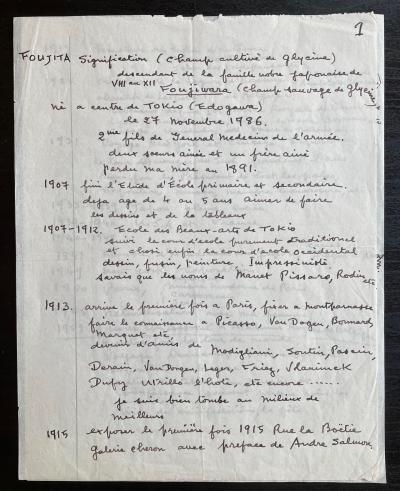 1
FOUJITA Signification (champ cultivé de glycine)
descendant de la famille noble japonaise de
VIII au XII Foujiwara (champ sauvage de glycine)
né a centre de TOKIO (Edogawa)
le 27 novembre 1986.
2me fils de General medecins de l'armée.
deux soeurs ainée et un frère ainé
perdu ma mère en 1891.
1907 fini l'Etude d'École primaire et secondaire.
deja age de 4 ou 5 ans aimer de faire
les dessins et de la tableaux
1907-1912. Ecole des Beaux-arts de Tokio
suivi le cours d'ecole purement traditionel
et choisi enfin la cours d'ecole occidental
dessin, fusin, peinture. Impressioniste
savais que les noms de Manet Pissaro, Rodin, etc
1913. arrive le première fois a Paris, fixer a montparnasse
faire le connaissance a Picasso, Van Dogen, Bonnard,
Marquet etc
devenir d'amis de Modigliani, Soutin, Pascin,
Derain, Van Dongen, Leger, Friez, Vlaminck
Dufy Utrillo l'hote, etc encore ......
je suis bien tombe au milieux de
meilleurs
1915 exposer le première fois 1915 Rue la Boëtie
galerie cheron avec preface de Andre Salmon.